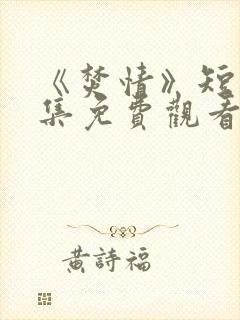 《焚情》短
集免費觀看
黃詩福